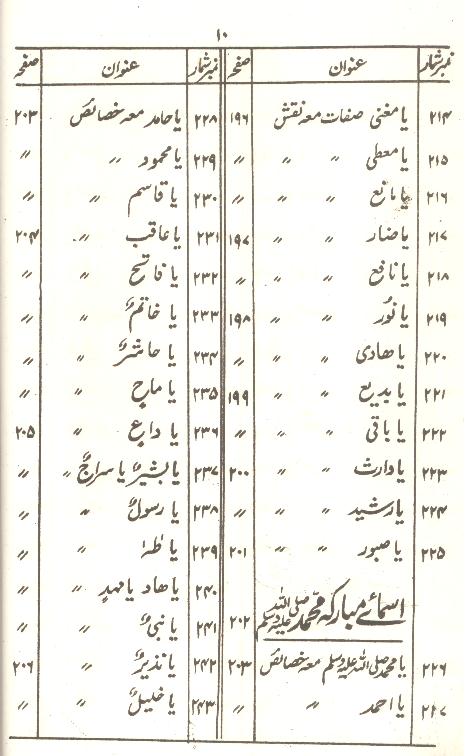 ۱۰
نمبرشمار عنوان صفحہ
۲۱۴ یا مغنی صفات معہ نقش ۱۹۶
۲۱۵ یا معطی 〃 〃 〃
۲۱۶ یا مانع 〃 〃 〃
۲۱۷ یا ضار 〃 〃 ۱۹۷
۲۱۸ یا نافع 〃 〃 〃
۲۱۹ یا نور 〃 〃 ۱۹۸
۲۲۰ یا ھادی 〃 〃 〃
۲۲۱ یا بدیع 〃 〃 ۱۹۹
۲۲۲ یا باقی 〃 〃 〃
۲۲۳ یا وارث 〃 〃 ۲۰۰
۲۲۴ یا رشید 〃 〃 〃
۲۲۵ یا صبور 〃 〃 ۲۰۱
اسمائے مبارکہ محمد صلی اللہ علیہ وسلم ۲۰۲
۲۲۶ یا محمد صلی اللہ علیہ وسلم معہ خصائص ۲۰۳
۲۲۷ یا احمد 〃 〃
نمبرشمار عنوان صفحہ
۲۲۸ یا حامد معہ خصائص ۲۰۳
۲۲۹ یا محمود 〃 〃
۲۳۰ یا قاسم 〃 〃
۲۳۱ یا عاقب 〃 ۲۰۴
۲۳۲ یا فاتح 〃 〃
۲۳۳ یا خاتمٌ 〃 〃
۲۳۴ یا حاشرٌ 〃 〃
۲۳۵ یا ماحٍ 〃 〃
۲۳۶ یا داعٍ 〃 ۲۰۵
۲۳۷ یا بشیرٌ یا سراجٌ 〃 〃
۲۳۸ یا رسولٌ 〃 〃
۲۳۹ یا طٰہٰ 〃 〃
۲۴۰ یا ھاد یا مھدٍ 〃 〃
۲۴۱ یا نبیٌ 〃 〃
۲۴۲ یا نذیرٌ 〃 ۲۰۶
۲۴۳ یا خلیلٌ 〃 〃